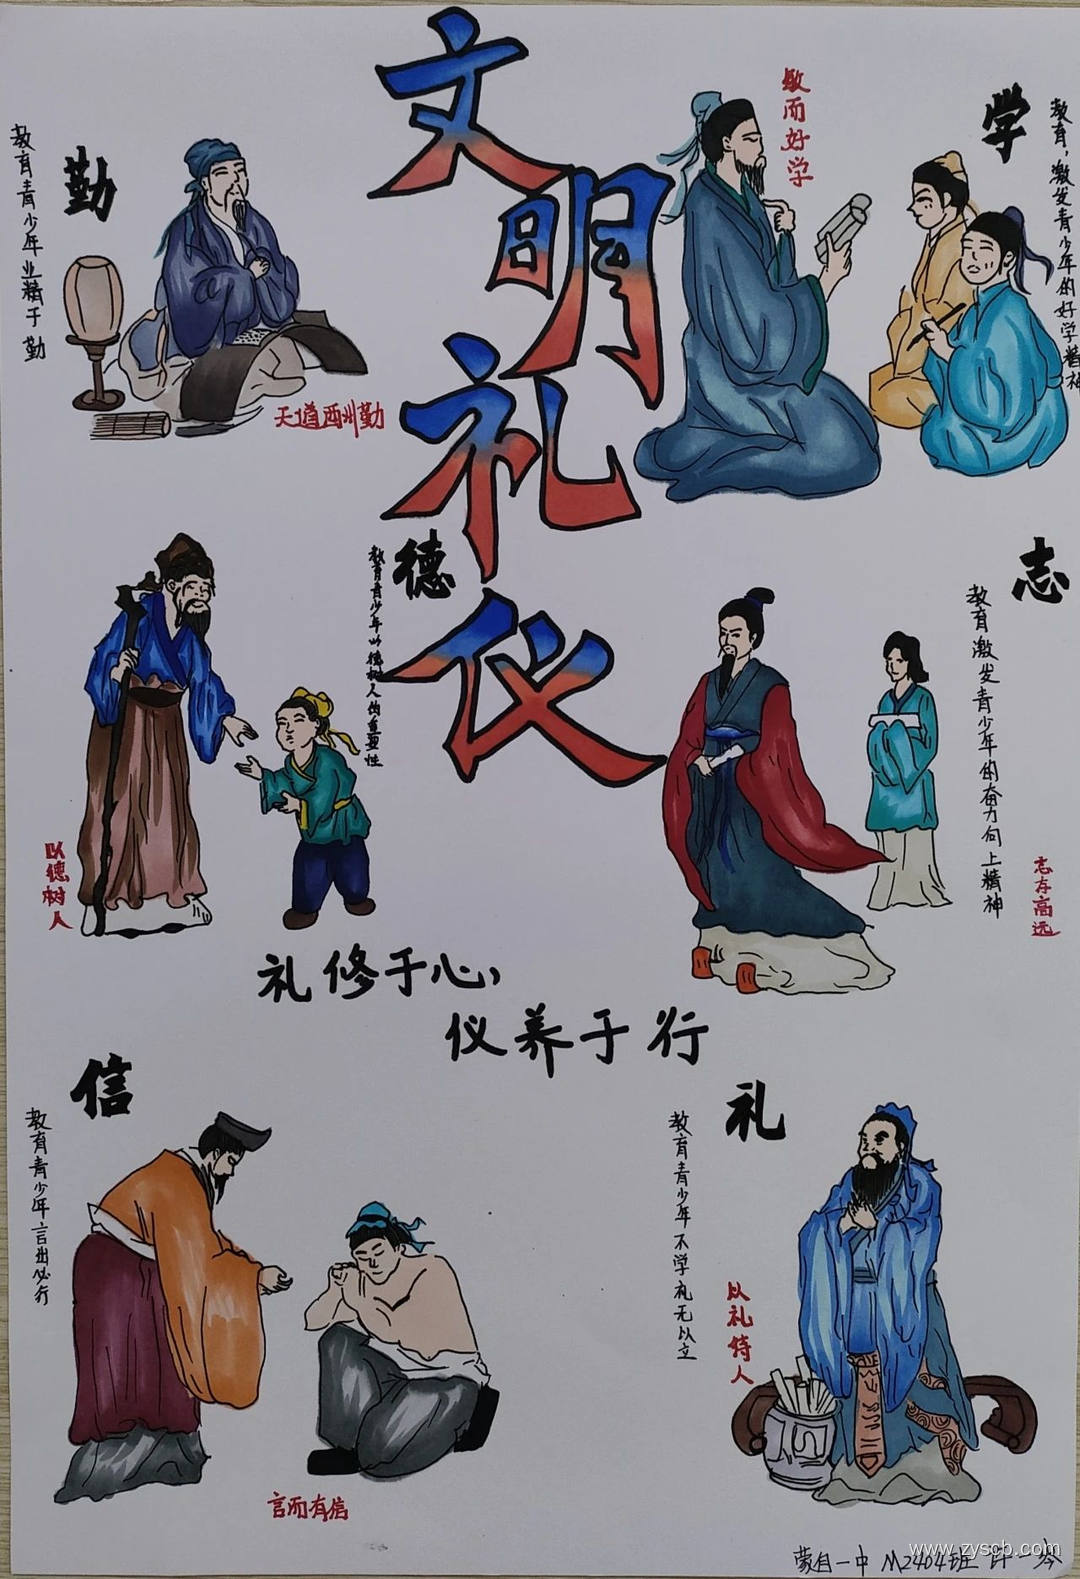 文明礼仪
勤
教育青少年业精于勤
天道酉州勤
敏而好学
学
教育，激发青少年的好学精神
德
教育青少年以德树人的重要性
以德树人
志
教育激发青少年的奋力向上精神
志存高远
礼修于心，
仪养于行
信
教育青少年言出必行
言而有信
礼
教育青少年不学礼无以立
以礼待人
蒙自一中 M2404班 许一岑
www.zyscb.com